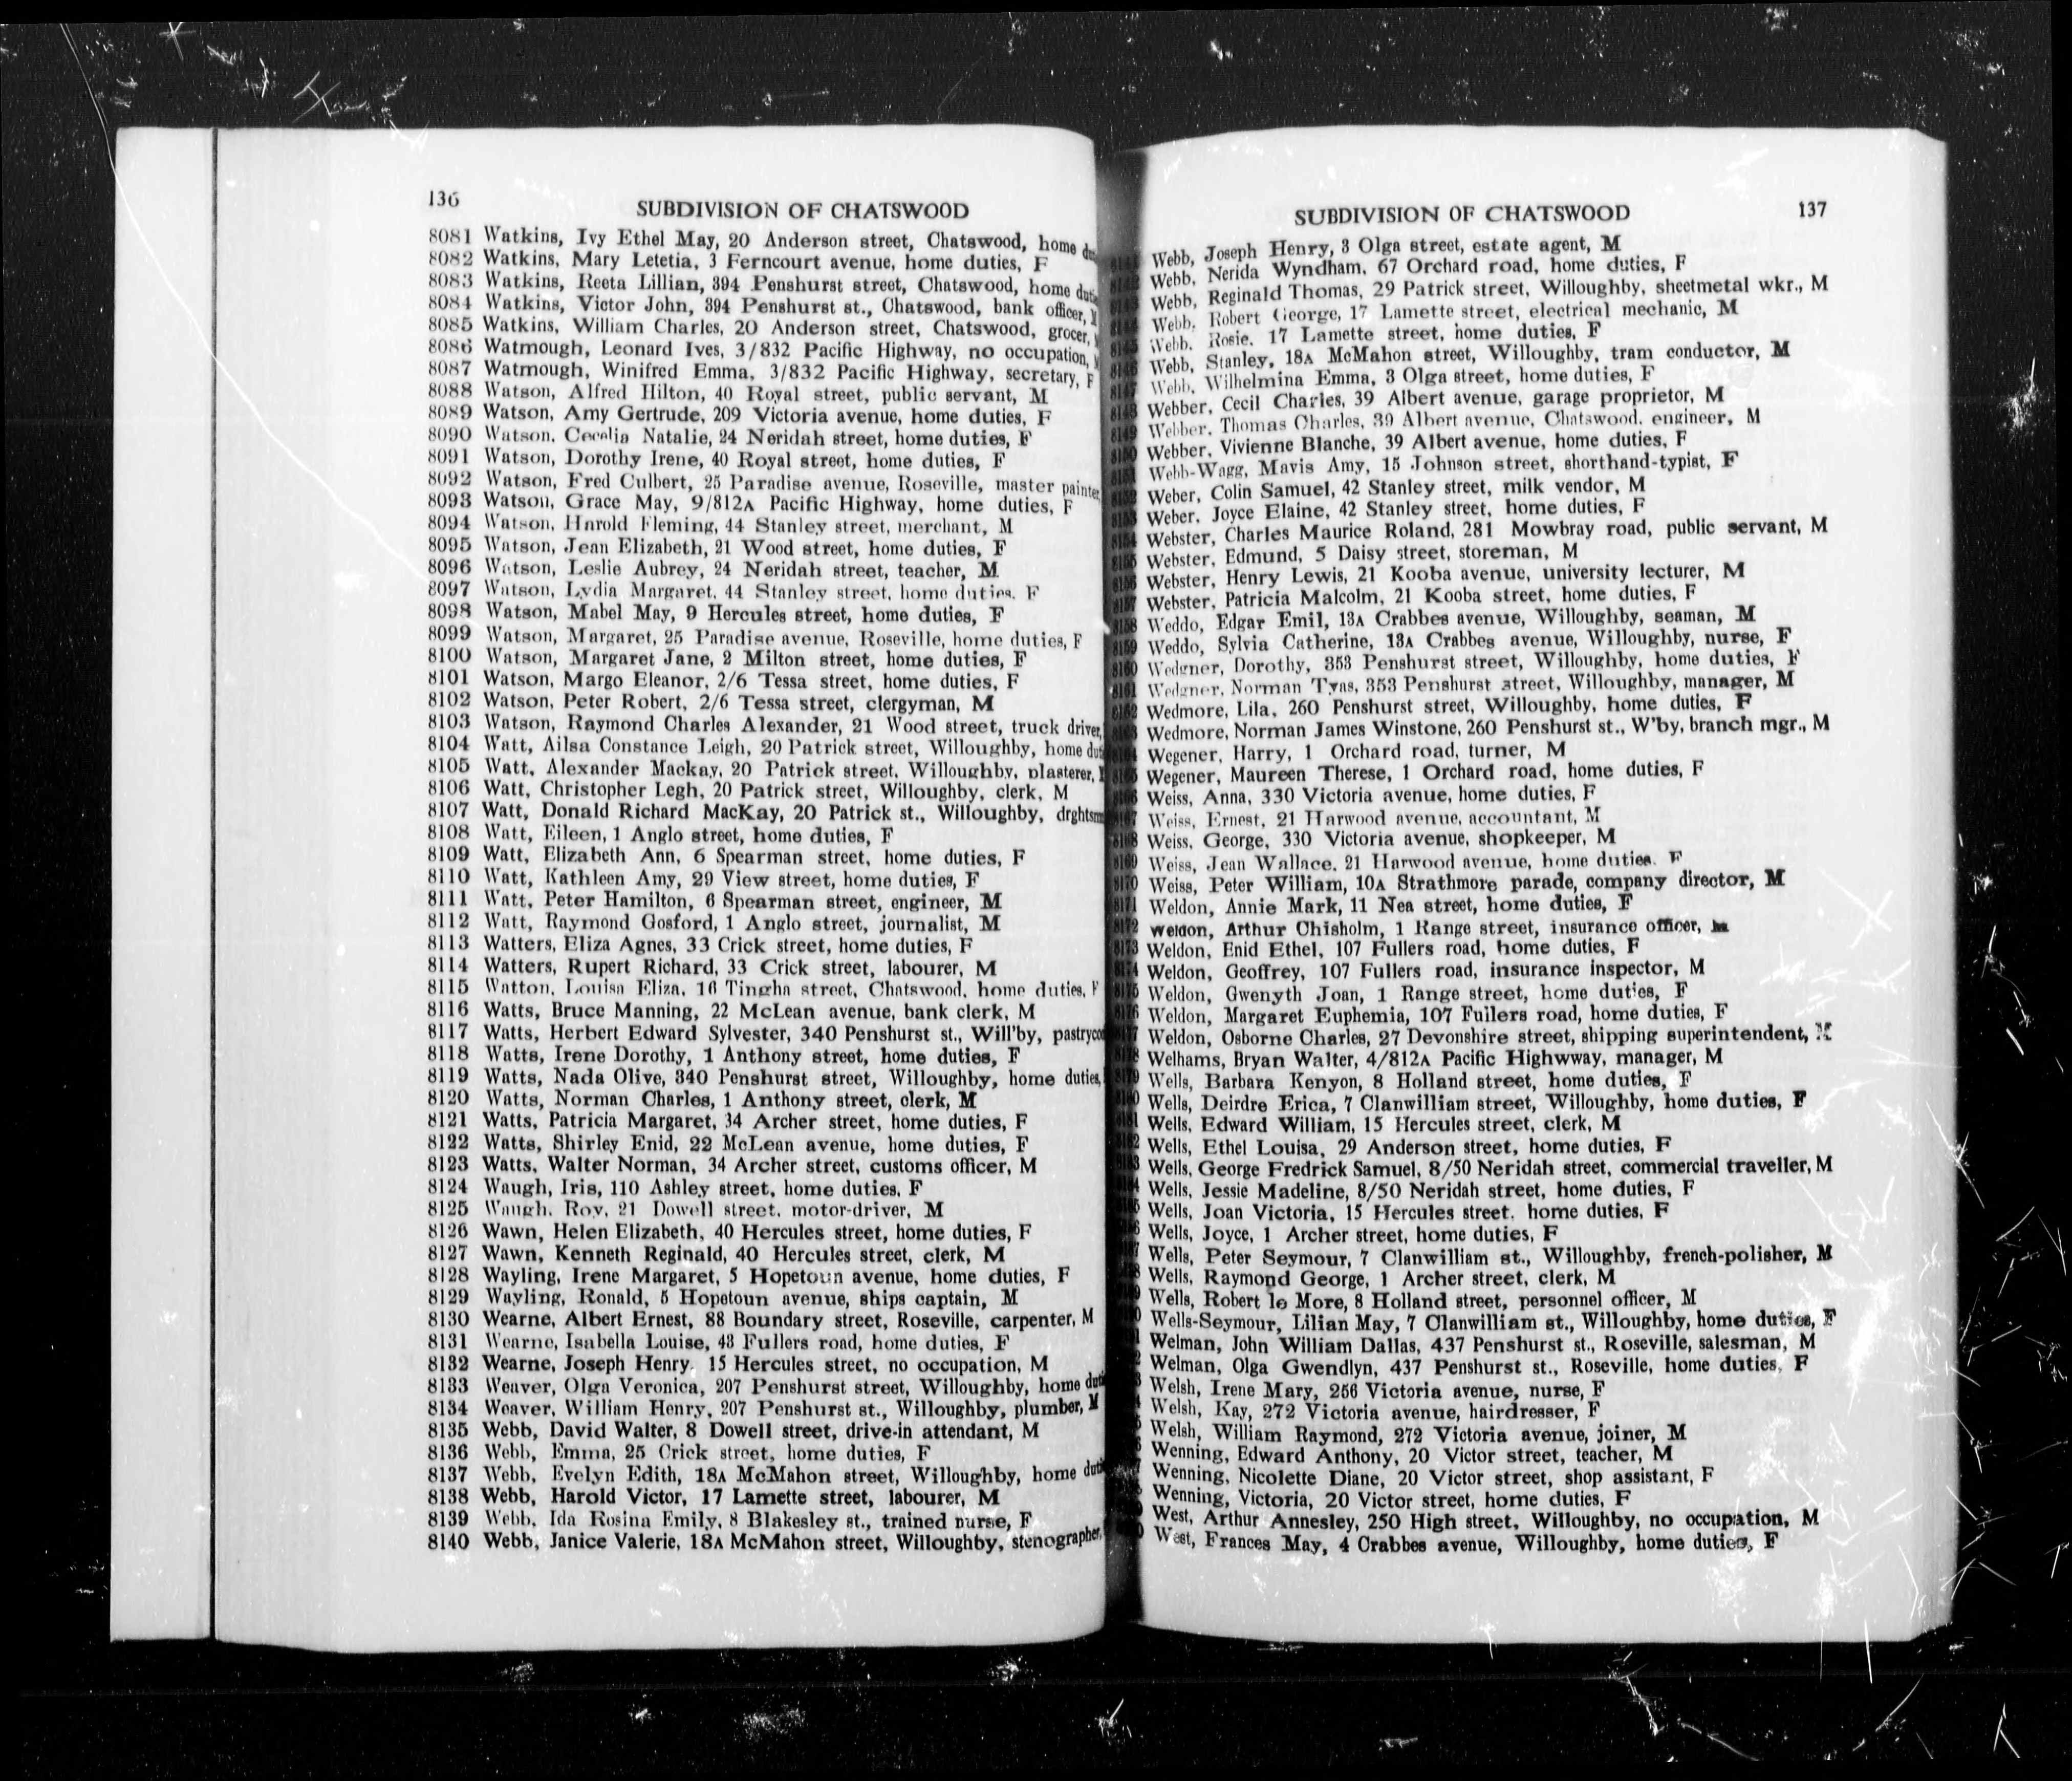 136
SUBDIVISION OF CHATSWOOD
8081 Watkins, Ivy Ethel May, 20 Anderson street, Chatswood, home
8082 Watkins, Mary Letetia, 3 Ferncourt avenue, home duties, F
8083 Watkins, Reeta Lillian, 394 Penshurst street, Chatswood, home
8084 Watkins, Victor John, 394 Penshurst st., Chatswood, bank officer,
8085 Watkins, William Charles, 20 Anderson street, Chatswood, grocer,
8086 Watmough, Leonard Ives, 3/832 Pacific Highway, no occupation,
8087 Watmough, Winifred Emma, 3/832 Pacific Highway, secretary, F
8088 Watson, Alfred Hilton, 40 Royal street, public servant, M
8089 Watson, Amy Gertrude, 209 Victoria avenue, home duties, F
8090 Watson, Cecelia Natalie, 24 Neridah street, home duties, F
8091 Watson, Dorothy Irene, 40 Royal street, home duties, F
8092 Watson, Fred Culbert, 25 Paradise avenue, Roseville, master painter,
8093 Watson, Grace May, 9/812A Pacific Highway, home duties, F
8094 Watson, Harold Fleming, 44 Stanley street, merchant, M
8095 Watson, Jean Elizabeth, 21 Wood street, home duties, F
8096 Watson, Leslie Aubrey, 24 Neridah street, teacher, M
8097 Watson, Lydia Margaret, 44 Stanley street, home duties, F
8098 Watson, Mabel May, 9 Hercules street, home duties, F
8099 Watson, Margaret, 25 Paradise avenue, Roseville, home duties, F
8100 Watson, Margaret Jane, 2 Milton street, home duties, F
8101 Watson, Margo Eleanor, 2/6 Tessa street, home duties, F
8102 Watson, Peter Robert, 2/6 Tessa street, clergyman, M
8103 Watson, Raymond Charles Alexander, 21 Wood street, truck driver,
8104 Watt, Ailsa Constance Leigh, 20 Patrick street, Willoughby, home
8105 Watt, Alexander Mackay, 20 Patrick street, Willoughby, plasterer,
8106 Watt, Christopher Legh, 20 Patrick street, Willoughby, clerk, M
8107 Watt, Donald Richard MacKay, 20 Patrick st., Willoughby,
8108 Watt, Eileen, 1 Anglo street, home duties, F
8109 Watt, Elizabeth Ann, 6 Spearman street, home duties, F
8110 Watt, Kathleen Amy, 29 View street, home duties, F
8111 Watt, Peter Hamilton, 6 Spearman street, engineer, M
8112 Watt, Raymond Gosford, 1 Anglo street, journalist, M
8113 Watters, Eliza Agnes, 33 Crick street, home duties, F
8114 Watters, Rupert Richard, 33 Crick street, labourer, M
8115 Watton, Louisa Eliza, 16 Tingha street, Chatswood, home duties, F
8116 Watts, Bruce Manning, 22 McLean avenue, bank clerk, M
8117 Watts, Herbert Edward Sylvester, 340 Penshurst st., Will'by,
8118 Watts, Irene Dorothy, 1 Anthony street, home duties, F
8119 Watts, Nada Olive, 340 Penshurst street, Willoughby, home duties,
8120 Watts, Norman Charles, 1 Anthony street, clerk, M
8121 Watts, Patricia Margaret, 34 Archer street, home duties, F
8122 Watts, Shirley Enid, 22 McLean avenue, home duties, F
8123 Watts, Walter Norman, 34 Archer street, customs officer, M
8124 Waugh, Iris, 110 Ashley street, home duties, F
8125 Waugh, Roy, 21 Dowell street, motor-driver, M
8126 Wawn, Helen Elizabeth, 40 Hercules street, home duties, F
8127 Wawn, Kenneth Reginald, 40 Hercules street, clerk, M
8128 Wayling, Irene Margaret, 5 Hopetoun avenue, home duties, F
8129 Wayling, Ronald, 5 Hopetoun avenue, ships captain, M
8130 Wearne, Albert Ernest, 88 Boundary street, Roseville, carpenter, M
8131 Wearne, Isabella Louise, 43 Fullers road, home duties, F
8132 Wearne, Joseph Henry, 15 Hercules street, no occupation, M
8133 Weaver, Olga Veronica, 207 Penshurst street, Willoughby, home
8134 Weaver, William Henry, 207 Penshurst st., Willoughby, plumber, M
8135 Webb, David Walter, 8 Dowell street, drive-in attendant, M
8136 Webb, Emma, 25 Crick street, home duties, F
8137 Webb, Evelyn Edith, 18A McMahon street, Willoughby, home
8138 Webb, Harold Victor, 17 Lamette street, labourer, M
8139 Webb, Ida Rosina Emily, 8 Blakesley st., trained nurse, F
8140 Webb, Janice Valerie, 18A McMahon street, Willoughby, stenographer,
SUBDIVISION OF CHATSWOOD
137
Webb, Joseph Henry, 3 Olga street, estate agent, M
Webb, Nerida Wyndham, 67 Orchard road, home duties, F
Webb, Reginald Thomas, 29 Patrick street, Willoughby, sheetmetal wkr., M
Webb, Robert George, 17 Lamette street, electrical mechanic, M
Webb, Rosie, 17 Lamette street, home duties, F
Webb, Stanley, 18A McMahon street, Willoughby, tram conductor, M
Webb, Wilhelmina Emma, 3 Olga street, home duties, F
Webber, Cecil Charles, 39 Albert avenue, garage proprietor, M
Webber, Thomas Charles, 39 Albert avenue, Chatswood, engineer, M
Webber, Vivienne Blanche, 39 Albert avenue, home duties, F
Webb-Wagg, Mavis Amy, 15 Johnson street, shorthand-typist, F
Weber, Colin Samuel, 42 Stanley street, milk vendor, M
Weber, Joyce Elaine, 42 Stanley street, home duties, F
Webster, Charles Maurice Roland, 281 Mowbray road, public servant, M
Webster, Edmund, 5 Daisy street, storeman, M
Webster, Henry Lewis, 21 Kooba avenue, university lecturer, M
Webster, Patricia Malcolm, 21 Kooba street, home duties, F
Weddo, Edgar Emil, 13A Crabbes avenue, Willoughby, seaman, M
Weddo, Sylvia Catherine, 13A Crabbes avenue, Willoughby, nurse, F
Wedgner, Dorothy, 353 Penshurst street, Willoughby, home duties, F
Wedgner, Norman Tyas, 353 Penshurst street, Willoughby, manager, M
Wedmore, Lila, 260 Penshurst street, Willoughby, home duties, F
Wedmore, Norman James Winstone, 260 Penshurst st., W'by, branch mgr., M
Wegener, Harry, 1 Orchard road, turner, M
Wegener, Maureen Therese, 1 Orchard road, home duties, F
Weiss, Anna, 330 Victoria avenue, home duties, F
Weiss, Ernest, 21 Harwood avenue, accountant, M
Weiss, George, 330 Victoria avenue, shopkeeper, M
Weiss, Jean Wallace, 21 Harwood avenue, home duties, F
Weiss, Peter William, 10A Strathmore parade, company director, M
Weldon, Annie Mark, 11 Nea street, home duties, F
Weldon, Arthur Chisholm, 1 Range street, insurance officer, M
Weldon, Enid Ethel, 107 Fullers road, home duties, F
Weldon, Geoffrey, 107 Fullers road, insurance inspector, M
Weldon, Gwenyth Joan, 1 Range street, home duties, F
Weldon, Margaret Euphemia, 107 Fullers road, home duties, F
Weldon, Osborne Charles, 27 Devonshire street, shipping superintendent, M
Welhams, Bryan Walter, 4/812A Pacific Highwway, manager, M
Wells, Barbara Kenyon, 8 Holland street, home duties, F
Wells, Deirdre Erica, 7 Clanwilliam street, Willoughby, home duties, F
Wells, Edward William, 15 Hercules street, clerk, M
Wells, Ethel Louisa, 29 Anderson street, home duties, F
Wells, George Fredrick Samuel, 8/50 Neridah street, commercial traveller, M
Wells, Jessie Madeline, 8/50 Neridah street, home duties, F
Wells, Joan Victoria, 15 Hercules street, home duties, F
Wells, Joyce, 1 Archer street, home duties, F
Wells, Peter Seymour, 7 Clanwilliam st., Willoughby, french-polisher, M
Wells, Raymond George, 1 Archer street, clerk, M
Wells, Robert le More, 8 Holland street, personnel officer, M
Wells-Seymour, Lilian May, 7 Clanwilliam st., Willoughby, home duties, F
Welman, John William Dallas, 437 Penshurst st., Roseville, salesman, M
Welman, Olga Gwendlyn, 437 Penshurst st., Roseville, home duties, F
Welsh, Irene Mary, 256 Victoria avenue, nurse, F
Welsh, Kay, 272 Victoria avenue, hairdresser, F
Welsh, William Raymond, 272 Victoria avenue, joiner, M
Wenning, Edward Anthony, 20 Victor street, teacher, M
Wenning, Nicolette Diane, 20 Victor street, shop assistant, F
Wenning, Victoria, 20 Victor street, home duties, F
West, Arthur Annesley, 250 High street, Willoughby, no occupation, M
West, Frances May, 4 Crabbes avenue, Willoughby, home duties, F